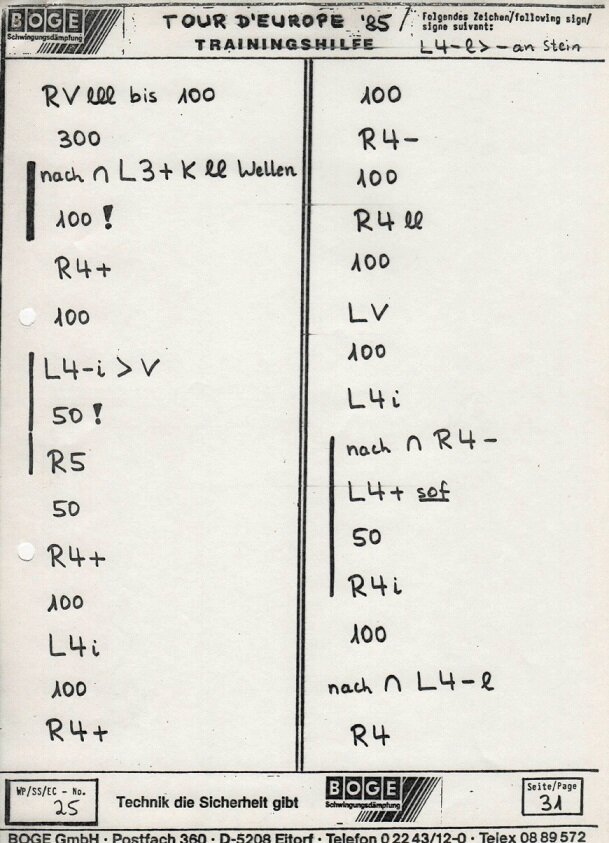 BOGE
Schwingungsdämpfung
TOUR D'EUROPE '85
TRAININGSHILFE
Folgendes Zeichen/following sign/
signe suivant:
L4-l>-an Stein
RV lll bis 100
300
nach ∩ L3+ K ll Wellen
100 !
R4+
100
L4-i > V
50 !
R5
50
R4+
100
L4i
100
R4+
100
R4-
100
R4 ll
100
LV
100
L4i
nach ∩ R4-
L4+ sof
50
R4i
100
nach ∩ L4-l
R4
WP/SS/EC - No.
25
Technik die Sicherheit gibt
BOGE
Schwingungsdämpfung
Seite/Page
31
BOGE GmbH · Postfach 360 · D-5208 Eitorf · Telefon 0 22 43/12-0 · Telex 08 89 572